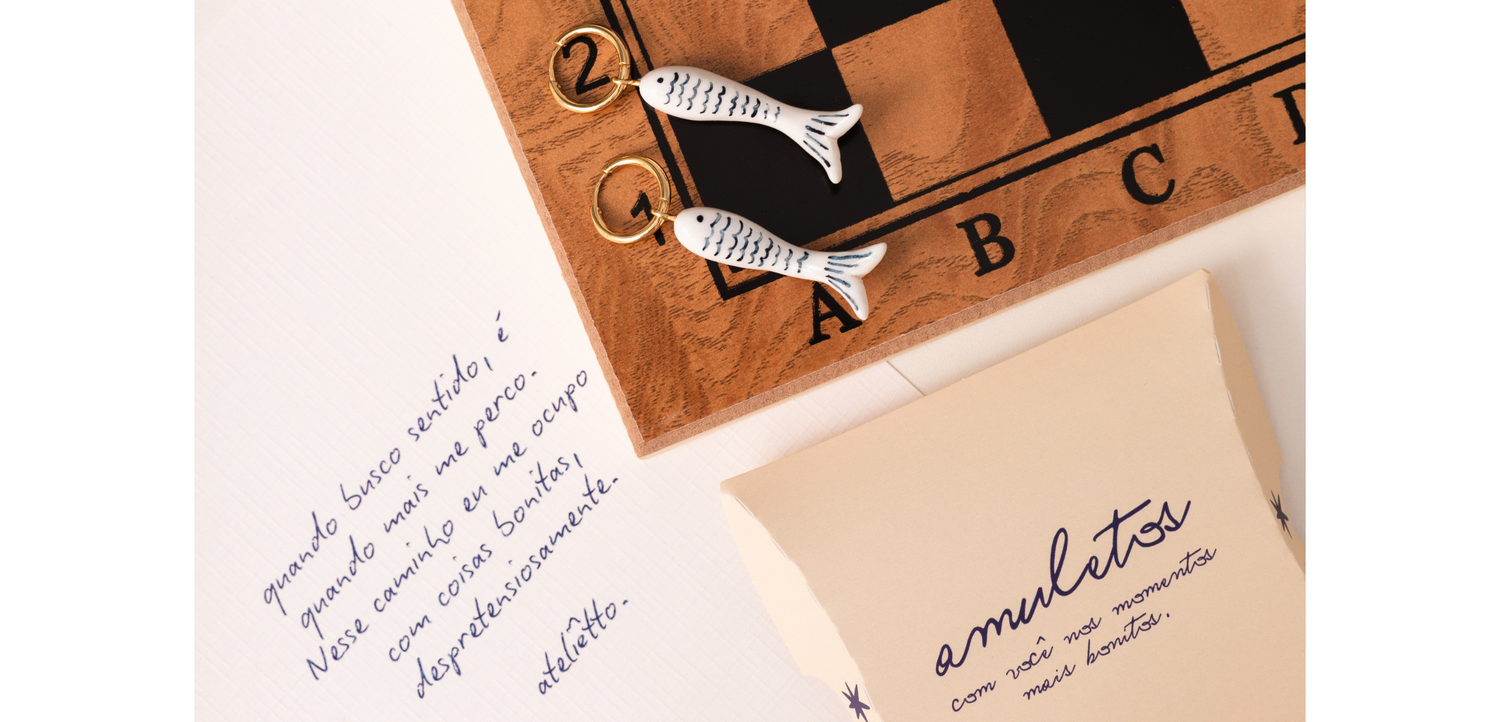 2
1
A
B
C
D
quando busco sentido, é
quando mais me perco.
Nesse caminho eu me ocupo
com coisas bonitas,
despretensiosamente.
ateliêtto.
amuletos
com você nos momentos
mais bonitos.